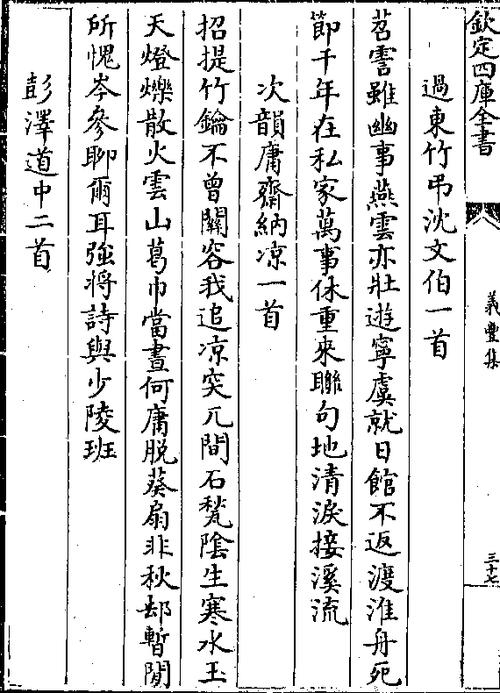 欽定四庫全書
義豐集
三十七
過東竹弔沈文伯一首
苕霅雖幽事燕雲亦壯遊寧虞就日館不返渡淮舟死
節千年在私家萬事休重來聯句地清淚接溪流
次韻庸齋納凉一首
招提竹鑰不曾關容我追凉突兀間石甃陰生寒水玉
天燈爍散火雲山葛巾當晝何庸脫葵扇非秋却暫閒
所愧岑參聊爾耳強將詩與少陵班
彭澤道中二首